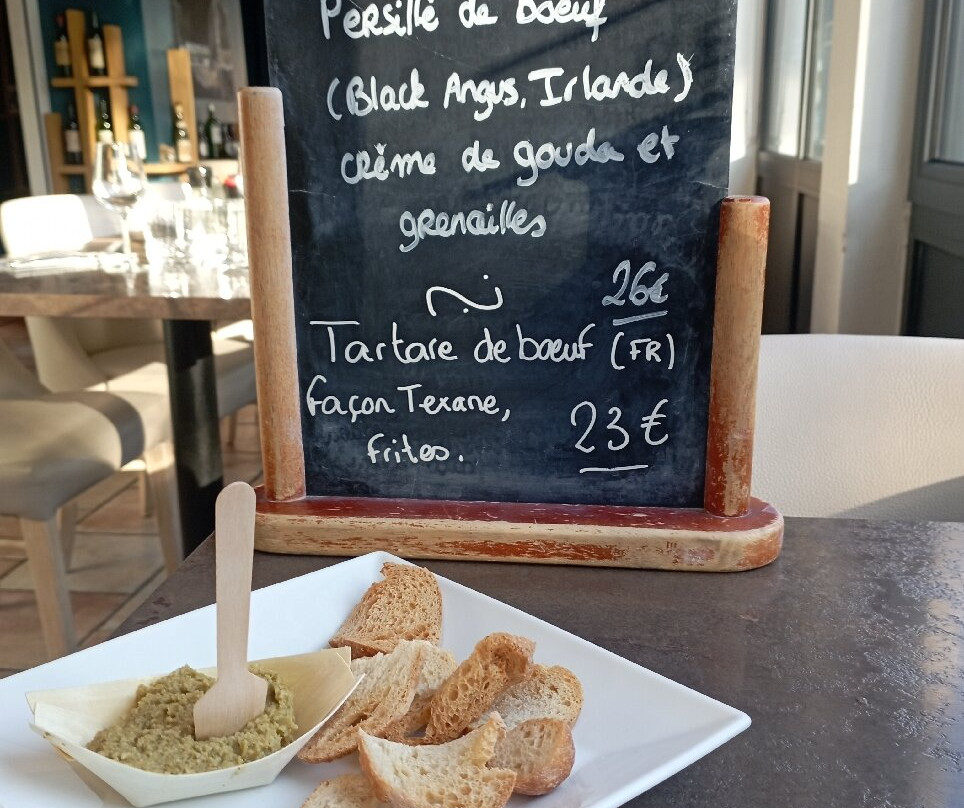 Persillé de boeuf
(Black Angus, Irlande)
crème de gouda et
grenailles
26€
Tartare de boeuf (FR)
façon Texane,
frites.
23 €